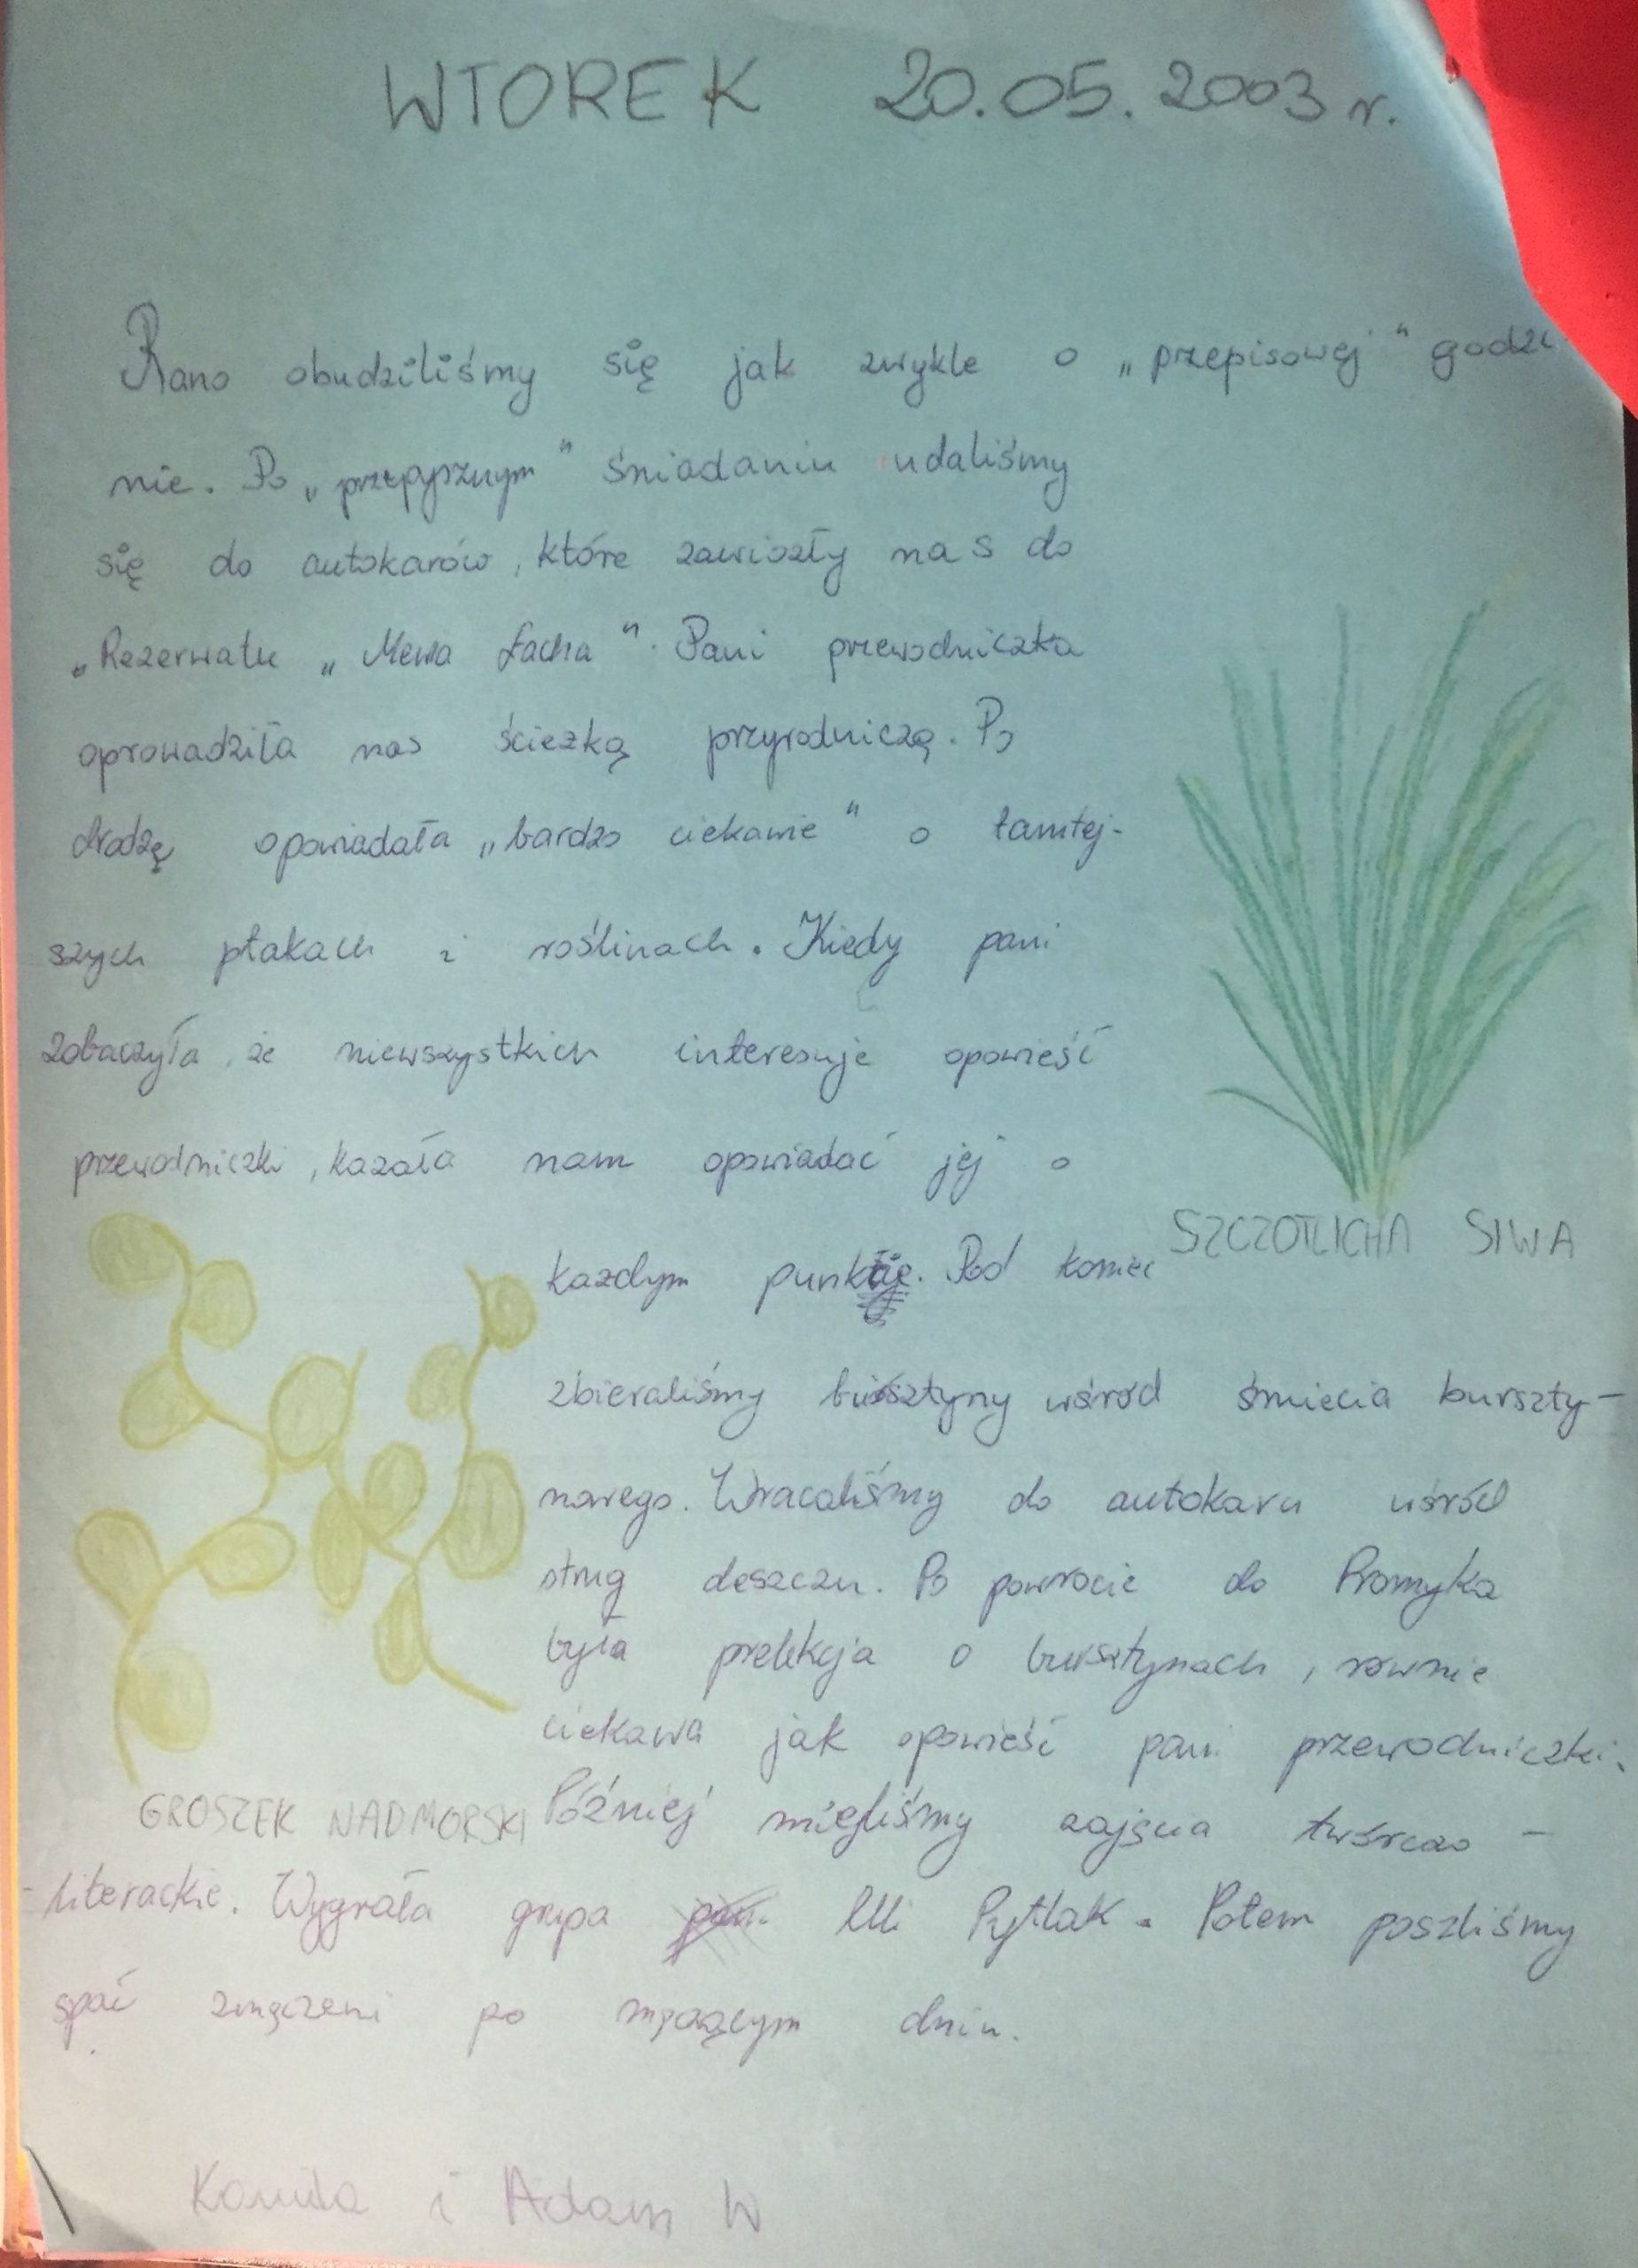 WTOREK 20.05.2003 r.
Rano obudziliśmy się jak zwykle o „przepisowej" godzi
nie. Po „przepysznym" śniadaniu udaliśmy
się do autokarów, które zawiozły nas do
„Rezerwatu „Mewia Łacha". Pani przewodniczka
oprowadziła nas ścieżką przyrodniczą. Po
drodzę opowiadała „bardzo ciekawie" o tamtej-
szych ptakach i roślinach. Kiedy pani
zobaczyła, że niewszystkich interesuje opowieść
przewodniczki, kazała nam opowiadać jej o
każdym punkcie. Pod koniec
SZCZOTLICHA SIWA
zbieraliśmy bursztyny wśród śmiecia burszty-
nowego. Wracaliśmy do autokaru wśród
strug deszczu. Po powrocie do Promyka
była prelekcja o bursztynach, rownie
ciekawa jak opowieść pani przewodniczki.
GROSZEK NADMORSKI
Później mieliśmy zajęcia twórczo -
- literackie. Wygrała grupa Uli Pytlak. Potem poszliśmy
spać zmęczeni po męczącym dniu.
Kamila i Adam W